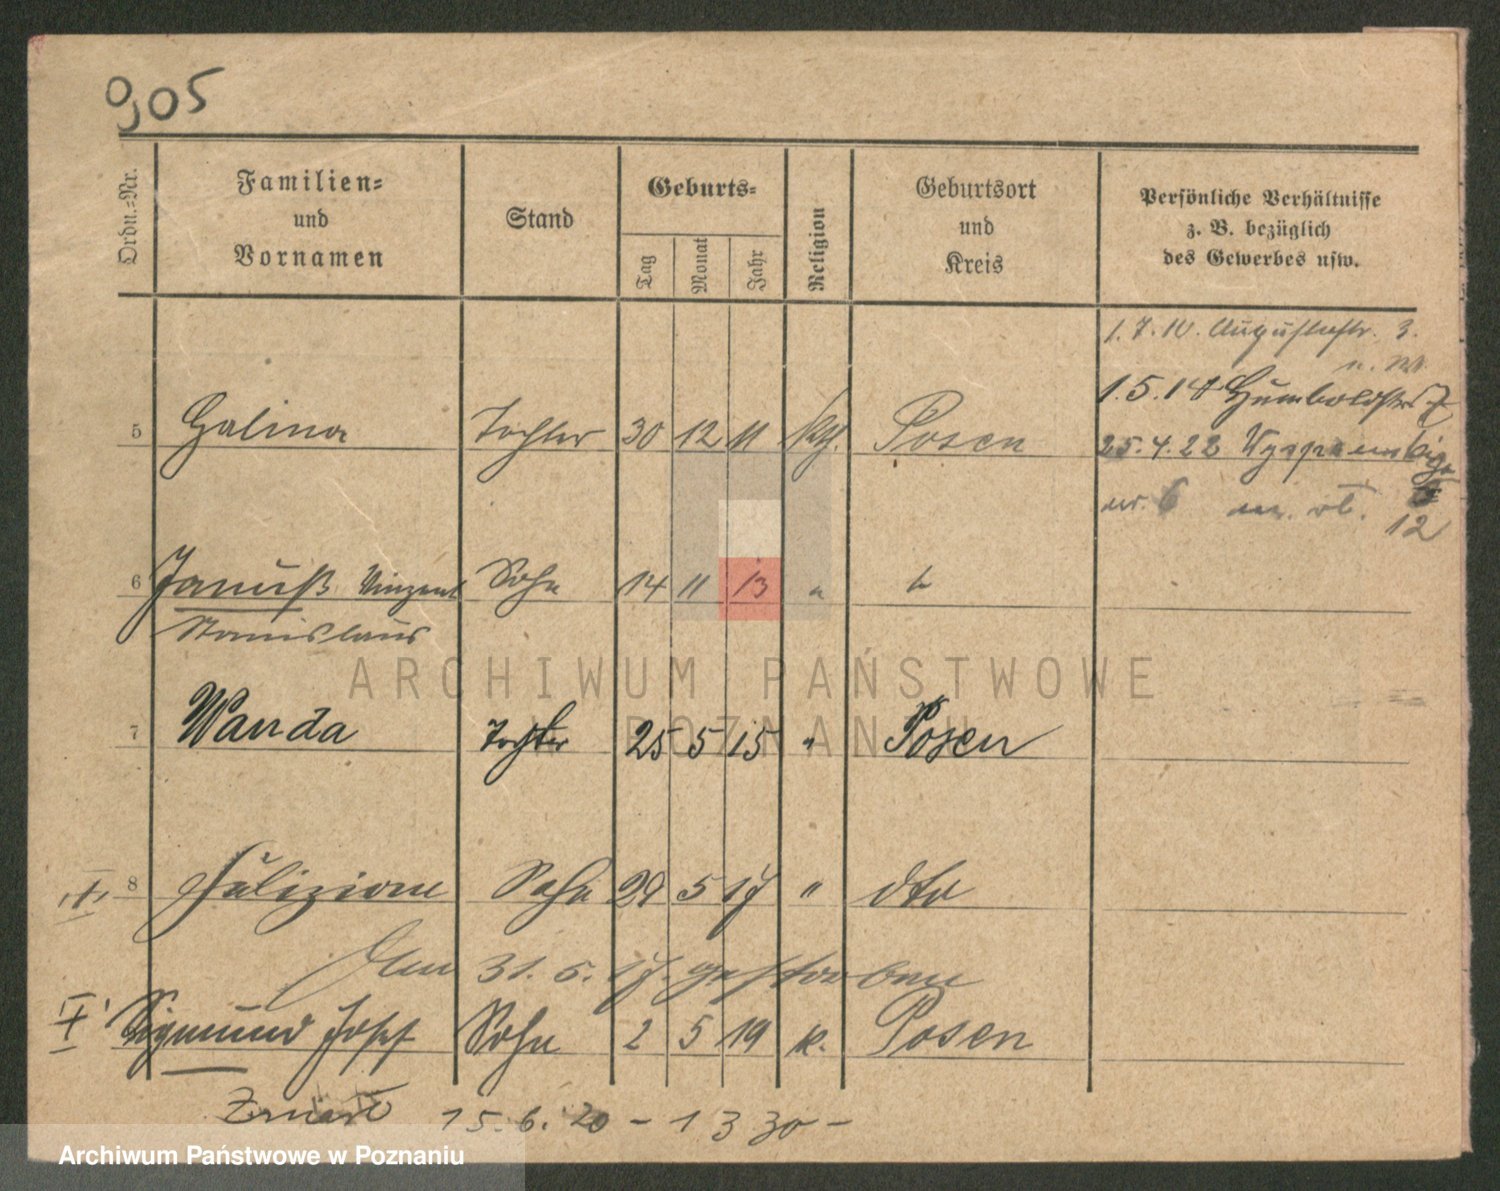 905
Ordn.-Nr.
Familien-
und
Vornamen
Stand
Geburts-
Tag
Monat
Jahr
Religion
Geburtsort
und
Kreis
Persönliche Verhältnisse
z. B. bezüglich
des Gewerbes usw.
1.7.10. Augustastr. 3.
1.5.14 Humboldtstr 7
25.4.22
nr. 6
12
5 Halina Tochter 30 12 11 kth. Posen
6 Januß Vinzent Sohn 14 11 13 "
Stanislaus
7 Wanda Tochter 25 5 15 " Posen
8 Felizian Sohn 29 5 17 " dto
Am 31.5.17. gestorben
Sigmund Josef Sohn 2 5 19 k. Posen
Zmarł 15.6.20 - 1330 -
ARCHIWUM PAŃSTWOWE
W POZNANIU
Archiwum Państwowe w Poznaniu